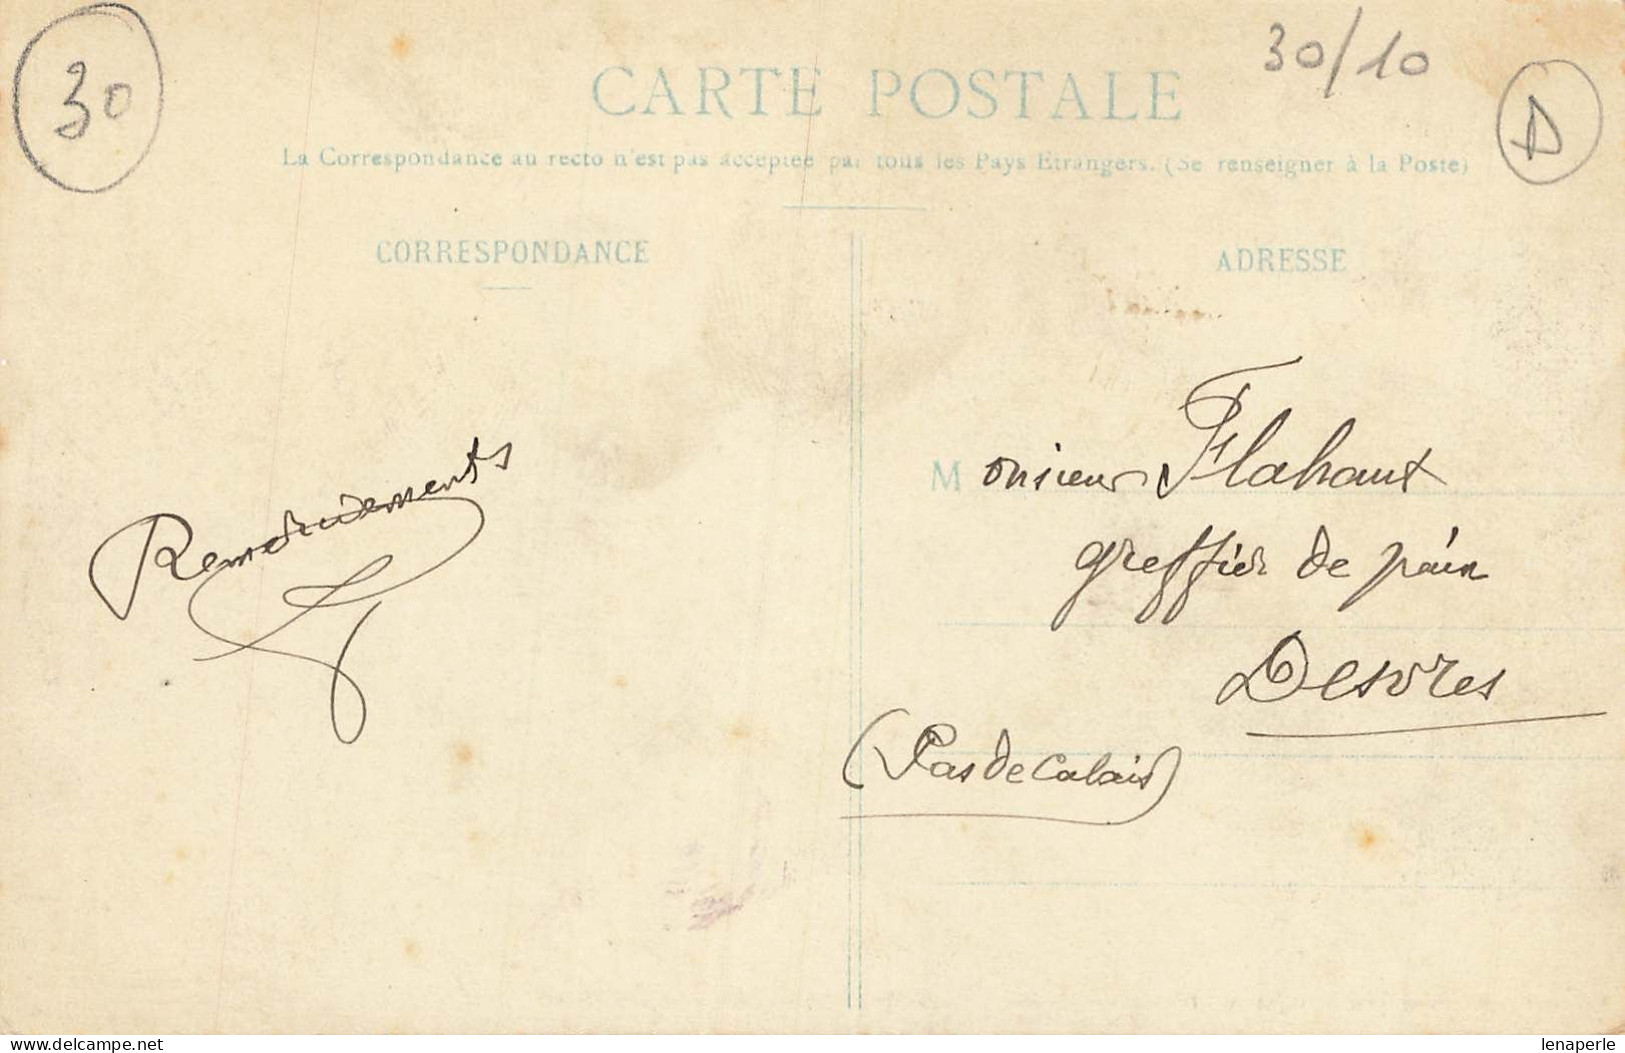 30
30/10
D
CARTE POSTALE
La Correspondance au recto n'est pas acceptée par tous les Pays Etrangers. (Se renseigner à la Poste)
CORRESPONDANCE
ADRESSE
Remerciements
Monsieur Flahaut
greffier de paix
Desvres
(Pas de Calais)
www.delcampe.net
lenaperle